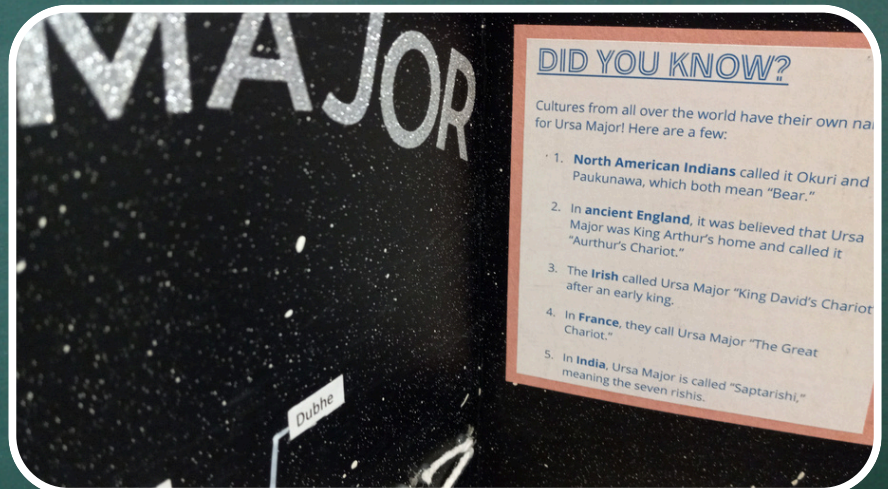 MAJOR
DID YOU KNOW?
Cultures from all over the world have their own
for Ursa Major! Here are a few:
1. North American Indians called it Okuri and
Paukunawa, which both mean “Bear.”
2. In ancient England, it was believed that Ursa
Major was King Arthur’s home and called it
“Aurthur’s Chariot.”
3. The Irish called Ursa Major “King David’s Chariot
after an early king.
4. In France, they call Ursa Major “The Great
Chariot.”
5. In India, Ursa Major is called “Saptarishi,”
meaning the seven rishis.
Dubhe